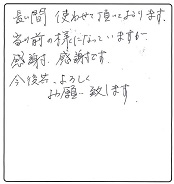 長い間 使わせて頂いております.
当り前の様になっていますが
感謝. 感謝です.
今後共. よろしく
お願い致します